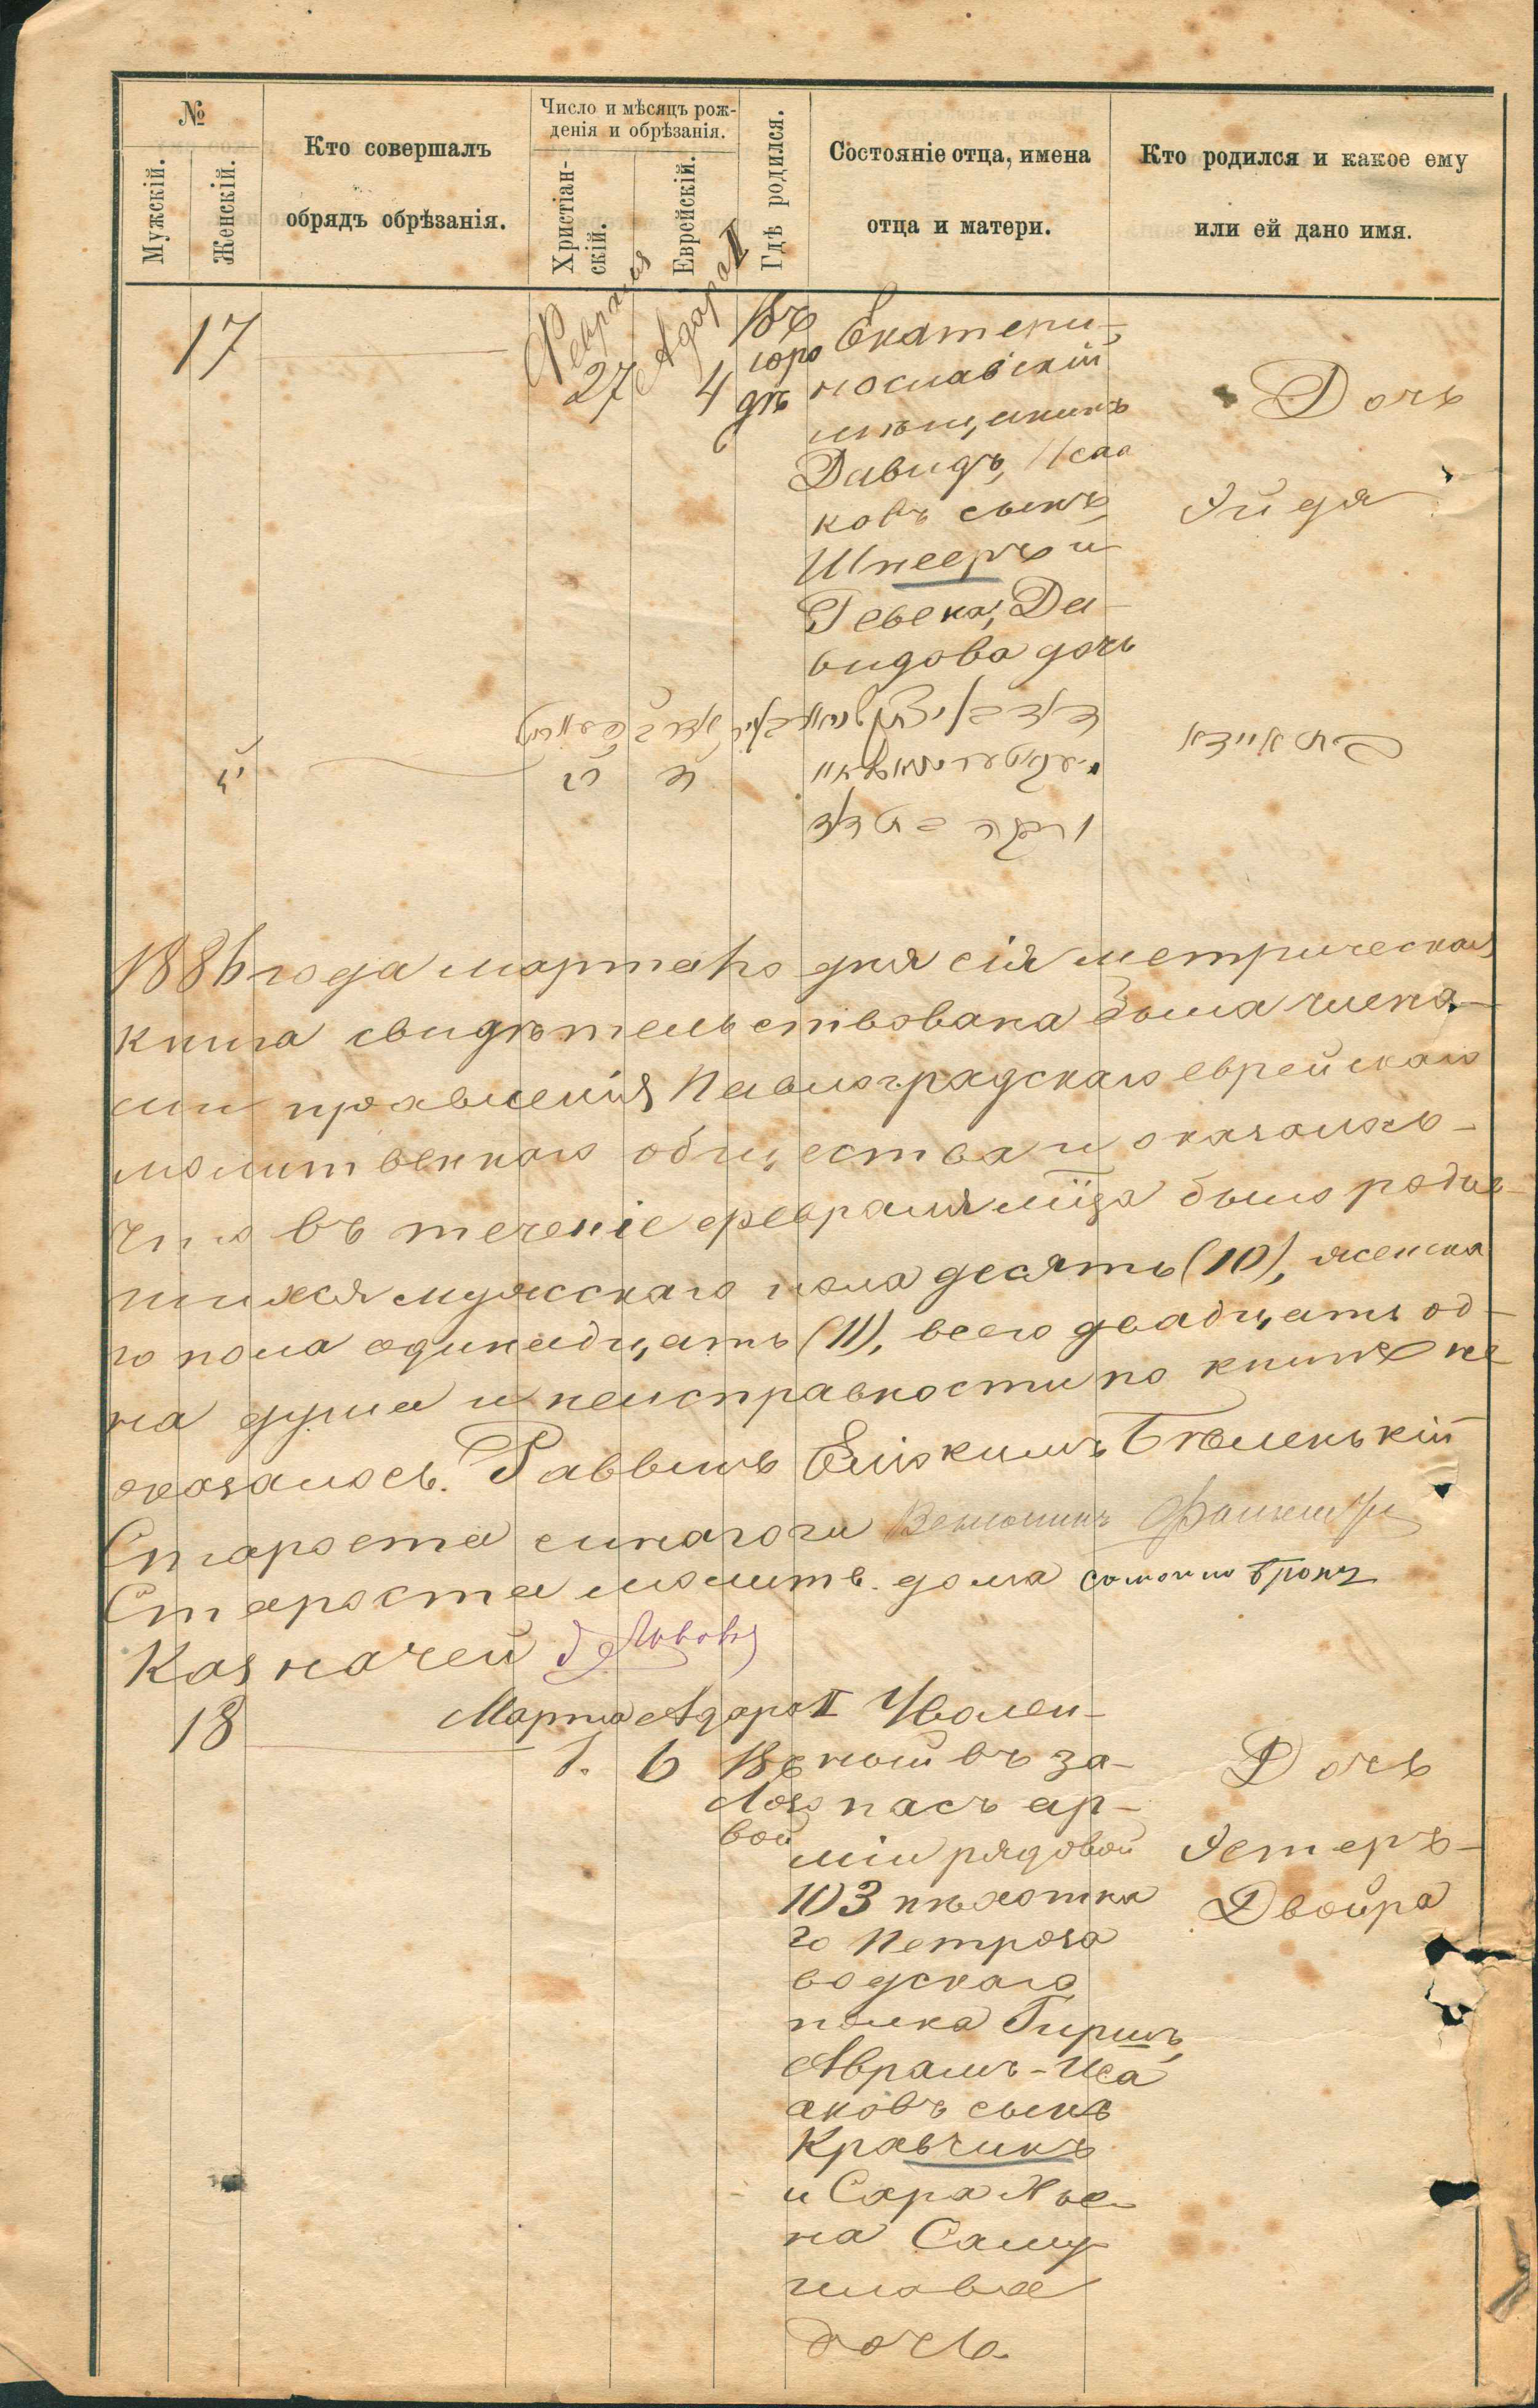 №
Мужскій.
Женскій.
Кто совершалъ
обрядъ обрѣзанія.
Число и мѣсяцъ рож-
денія и обрѣзанія.
Христіан-
скій.
Еврейскій.
Гдѣ родился.
Состояніе отца, имена
отца и матери.
Кто родился и какое ему
или ей дано имя.
17
Февраля
27
Адара II
4
Въ
горо
дѣ
Екатери-
нославскій
мѣщанинъ
Давидъ, Исаа
ковъ сынъ
Шнееръ и
Ревека, Да-
видова дочь
Дочь
Эйдя
1886 года марта 1го дня сія метрическая
книга свидѣтельствована была члена-
ми правленія Павлоградскаго еврейскаго
молитвеннаго общества и оказалось
что въ теченіе февраля мѣца было родив-
шихся мужескаго пола десять (10), женска
го пола одинадцать (11), всего двадцать од-
на душа и неисправности по книгѣ не
оказалось. Раввинъ Еліокимъ Бѣленькій
Староста синагоги Веньюминъ
Староста молитв. дома
Казначей
18
Марта
1.
Адара II
6
Въ
Лозо
вой
Уволен-
ный въ за-
пасъ ар-
міи рядовой
103 пѣхотна
го Петроза
водскаго
полка Гиршъ,
Абрамъ-Иса
аковъ сынъ
Кравчикъ
и Сара Хае-
на Саму-
илова
дочь
Дочь
Эстеръ-
Двойра